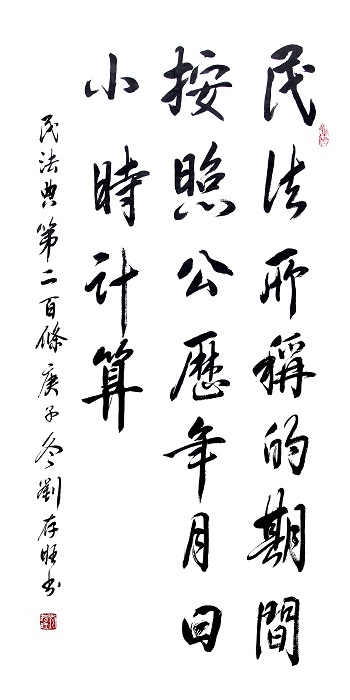 民法所稱的期間
按照公歷年月日
小時計算
民法典第二百條庚子冬劉存旺書